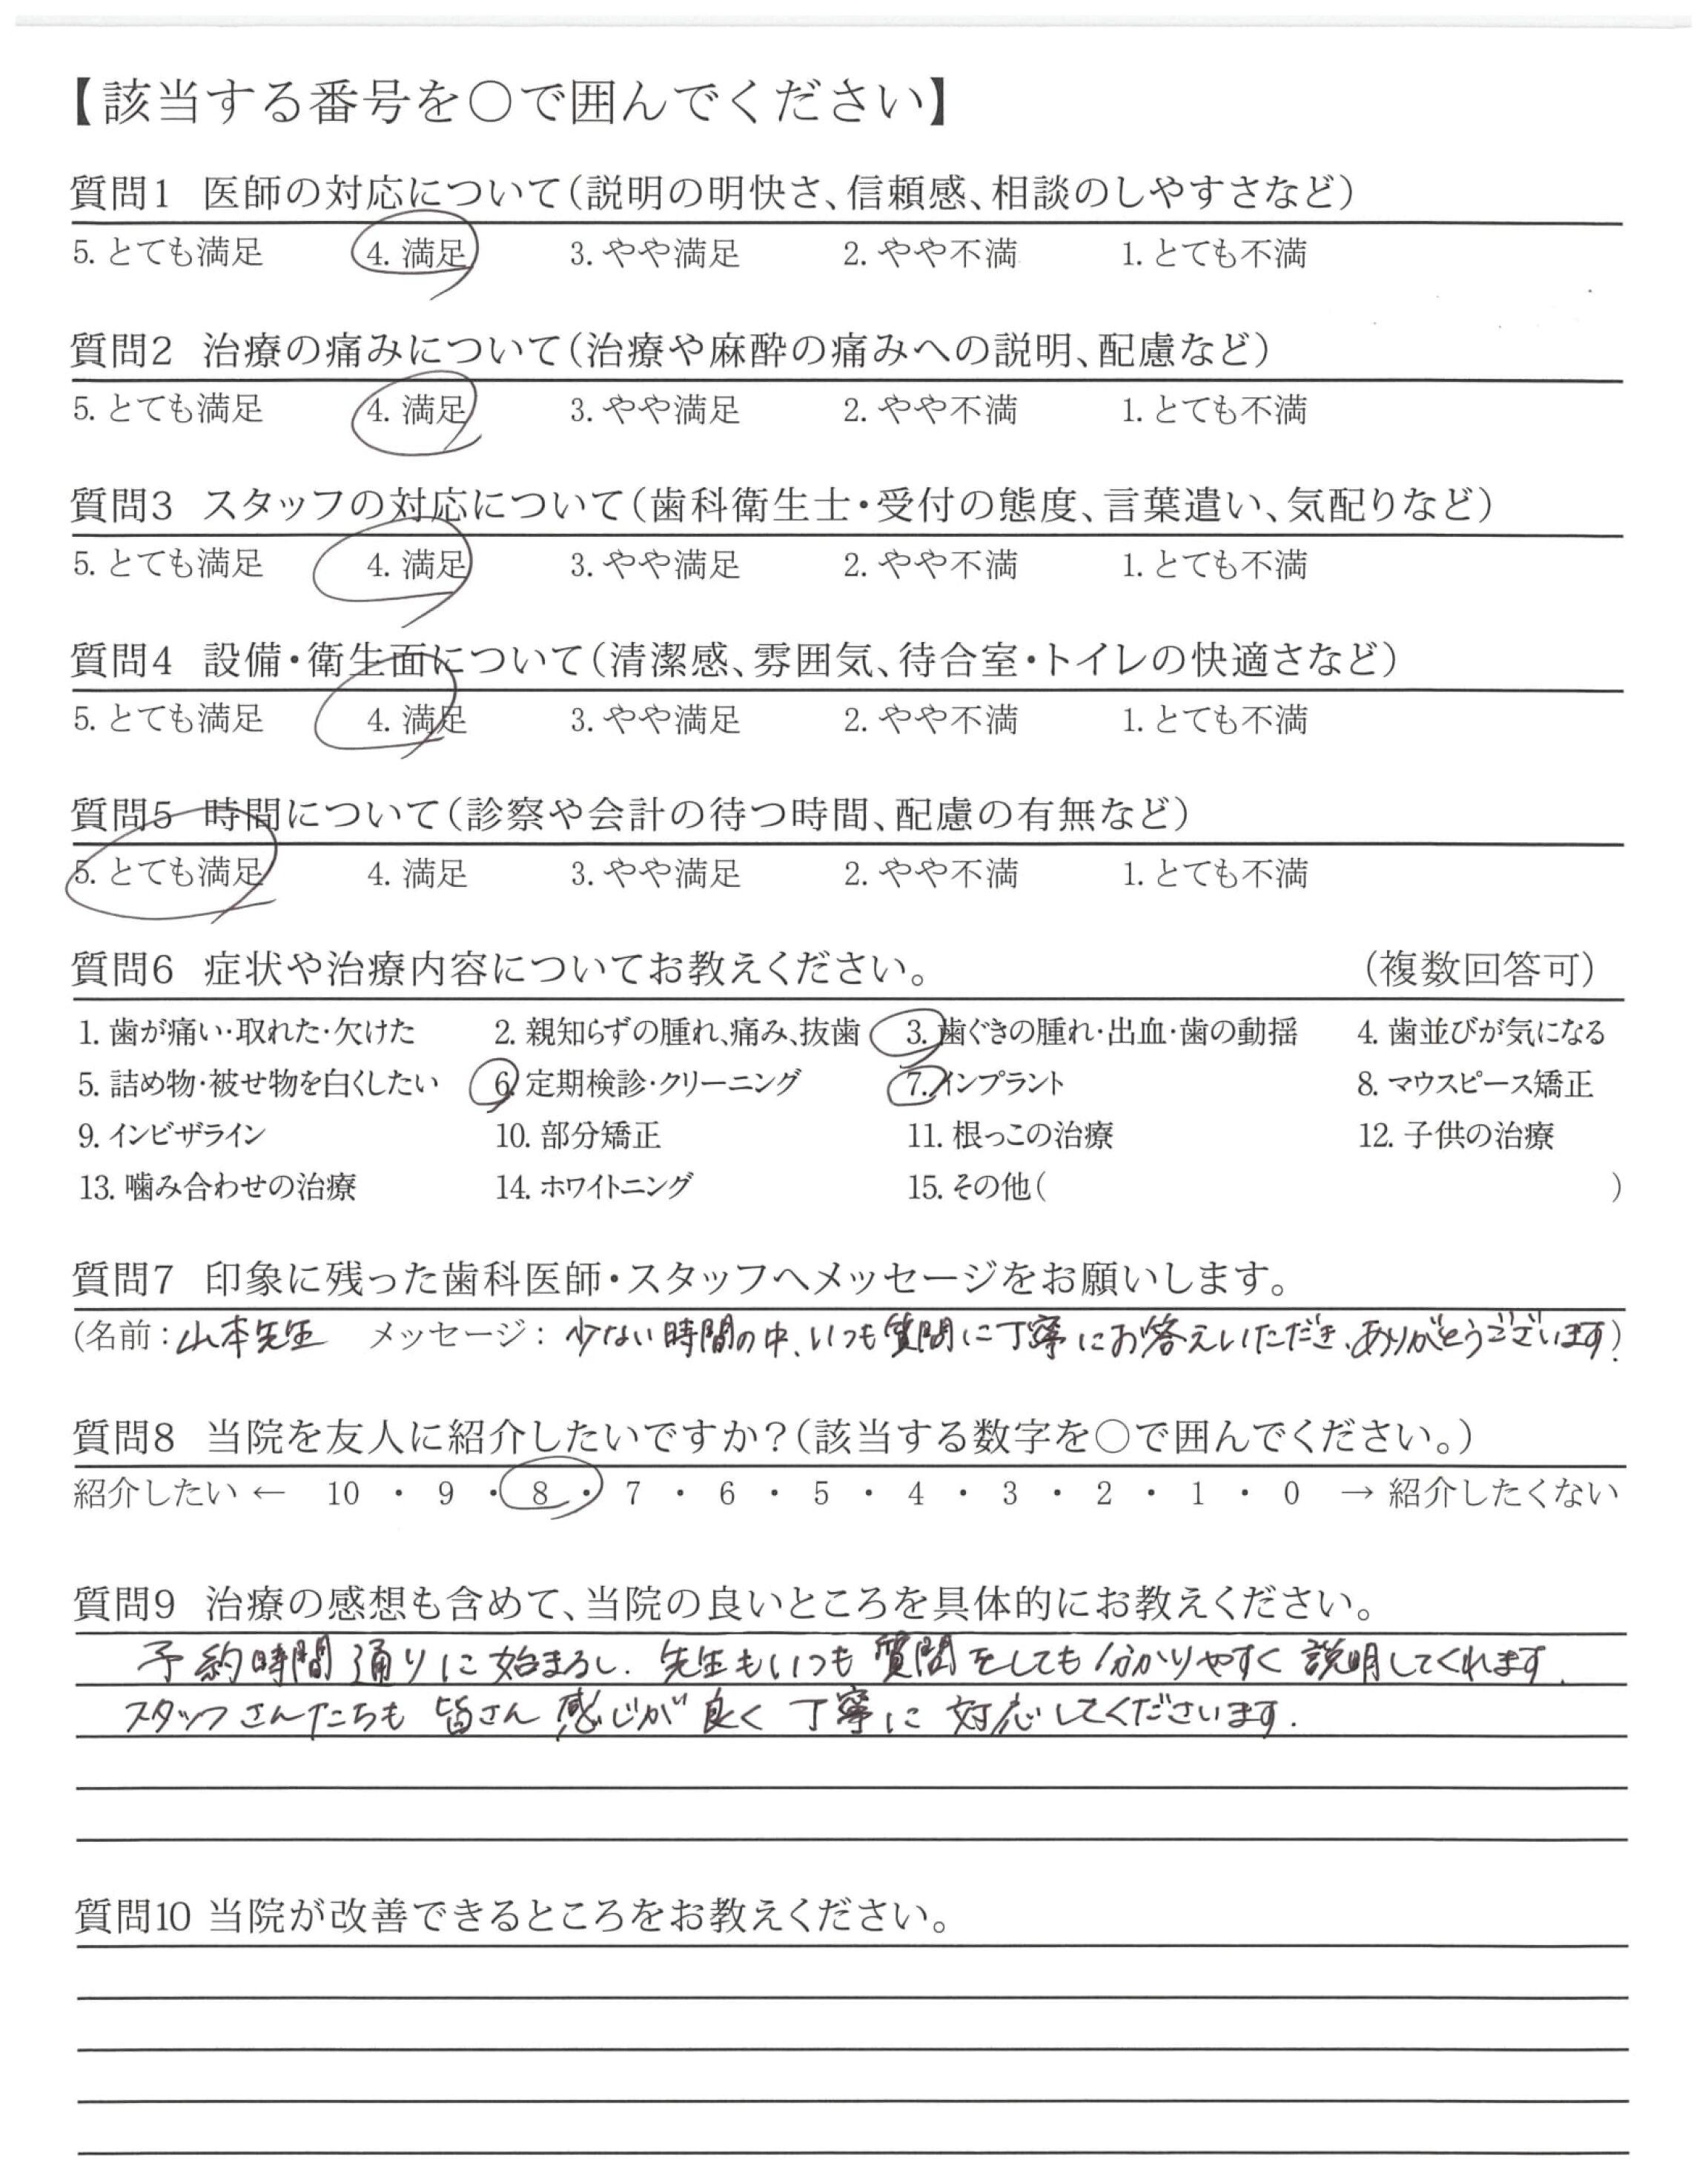 【該当する番号を○で囲んでください】
質問1 医師の対応について(説明の明快さ、信頼感、相談のしやすさなど)
5. とても満足 4. 満足 3. やや満足 2. やや不満 1. とても不満
質問2 治療の痛みについて(治療や麻酔の痛みへの説明、配慮など)
5. とても満足 4. 満足 3. やや満足 2. やや不満 1. とても不満
質問3 スタッフの対応について(歯科衛生士・受付の態度、言葉遣い、気配りなど)
5. とても満足 4. 満足 3. やや満足 2. やや不満 1. とても不満
質問4 設備・衛生面について(清潔感、雰囲気、待合室・トイレの快適さなど)
5. とても満足 4. 満足 3. やや満足 2. やや不満 1. とても不満
質問5 時間について(診察や会計の待つ時間、配慮の有無など)
5. とても満足 4. 満足 3. やや満足 2. やや不満 1. とても不満
質問6 症状や治療内容についてお教えください。 (複数回答可)
1. 歯が痛い・取れた・欠けた 2. 親知らずの腫れ、痛み、抜歯 3. 歯ぐきの腫れ・出血・歯の動揺 4. 歯並びが気になる
5. 詰め物・被せ物を白くしたい 6. 定期検診・クリーニング 7. インプラント 8. マウスピース矯正
9. インビザライン 10. 部分矯正 11. 根っこの治療 12. 子供の治療
13. 噛み合わせの治療 14. ホワイトニング 15. その他( )
質問7 印象に残った歯科医師・スタッフへメッセージをお願いします。
(名前:山本先生 メッセージ:少ない時間の中、いつも質問に丁寧にお答えいただき、ありがとうございます)
質問8 当院を友人に紹介したいですか?(該当する数字を○で囲んでください。)
紹介したい ← 10 ・ 9 ・ 8 ・ 7 ・ 6 ・ 5 ・ 4 ・ 3 ・ 2 ・ 1 ・ 0 → 紹介したくない
質問9 治療の感想も含めて、当院の良いところを具体的にお教えください。
予約時間通りに始まるし、先生もいつも質問をしても分かりやすく説明してくれます。
スタッフさんたちも皆さん感じが良く丁寧に対応してくださいます。
質問10 当院が改善できるところをお教えください。